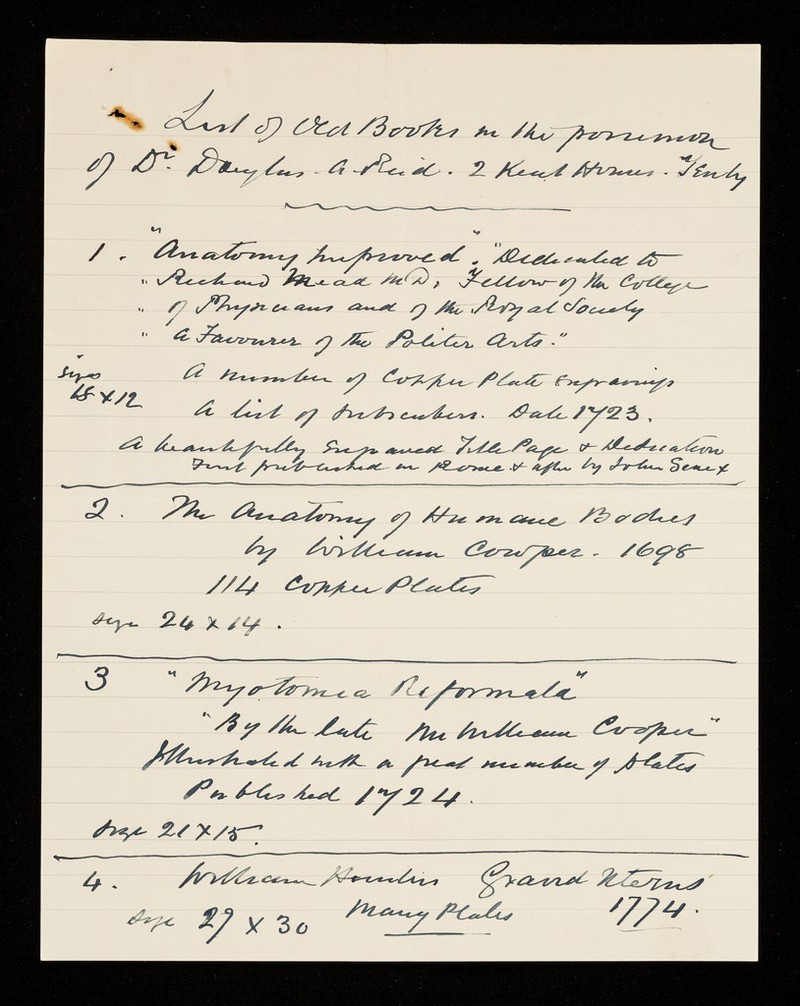 List of Old Books in the possession
of Dr. Douglas. A. Reid. 2 Kent Homes. Tenby
1. "Anatomy Improved". "Dedicated to
" Richard Mead M D, Fellow of the College
" of Physicians and of the Royal Society
" a Favourer of the Politer Arts."
A number of Copper Plate Engravings
Size
18 x 12
A list of Subscribers. Date 1723.
A beautifully Engraved Title Page & Dedication
First published in Rome & after by John Senex
2. The Anatomy of Humane Bodies
by William Cowper. 1698
114 Copper Plates
Size 24 x 14.
3 "Myotomia Reformata"
"By the late Mr William Cowper"
Illustrated with a great number of Plates
Published 1724.
Size 21 x 15.
4. William Gravid Uterus
Size 29 x 30 Many Plates 1774.